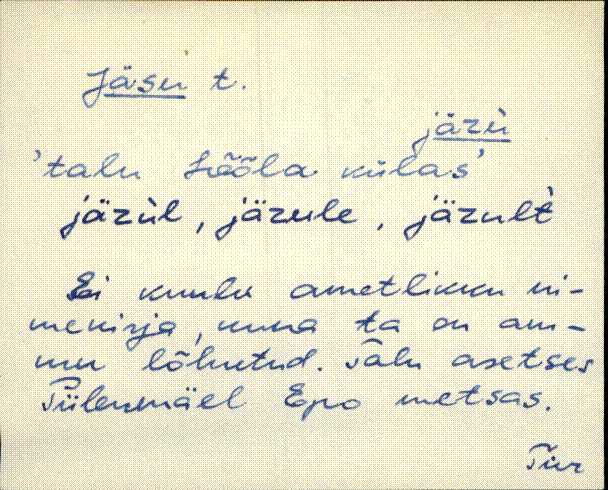 Jäsu t.
jäzù
'talu Lööla külas'
jäzùl, jäzule, jäzult̀
Ei kuulu ametlikku ni-
mekirja, kuna ta on am-
mu lõhutud. Talu asetses
Piilenmäel Epo metsas.
Tür